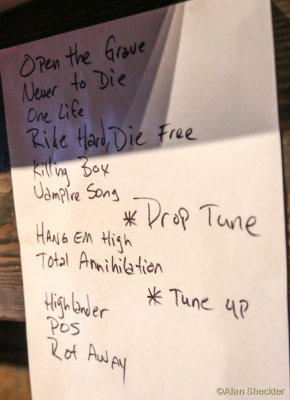 Open the Grave
Never to Die
One Life
Ride Hard, Die Free
Killing Box
Vampire Song
* Drop Tune
Hang Em High
Total Annihilation
* Tune up
Highlander
POS
Rot Away
©Alan Sheckter